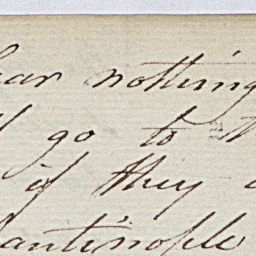 ear nothing
go to
if they
antinople